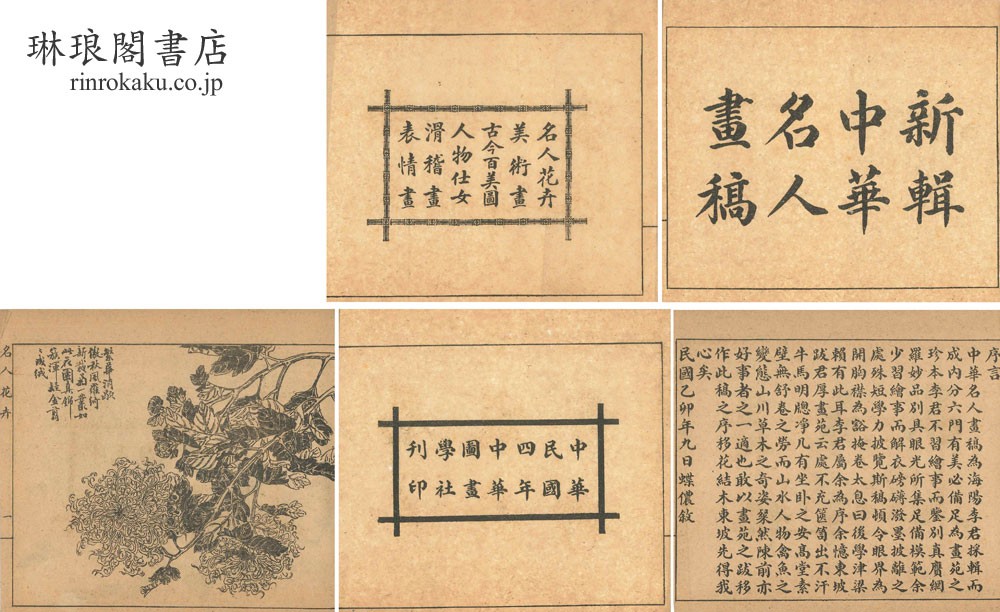 琳琅閣書店
rinrokaku.co.jp
名人花卉
美術畫
古今百美圖
人物仕女
滑稽畫
表情畫
新輯
中華
名人
畫稿
繁華消歇
傲秋風籬衍
新栽菊一叢如
此花團真錦
名人花卉
一
中華
民國
四年
中華
圖畫
學社
刊印
序言
中華名人畫稿為海陽李君採輯而
成內分六門有美必備足為畫苑之
珍本李君不習繪事而鑒別真贋網
羅妙品別具眼光所集足備模範余
少習繪事而解衣磅礴潑墨披離之
處殊短學力披覽斯稿頓令眼界為
開胸襟為豁掩卷太息曰後學津梁
賴有此耳李君屬余為序余憶東坡
跋君厚畫苑云處不充篋笥出不汗
牛馬明牕凈几有坐臥之安高堂素
壁無舒卷之勞而山水人物禽魚之
變態山川草木之奇姿粲然陳前亦
好事者之一適也敢以畫苑之跋移
作此稿之序移花結木東坡先得我
心矣
民國乙卯年九日蝶儂敘